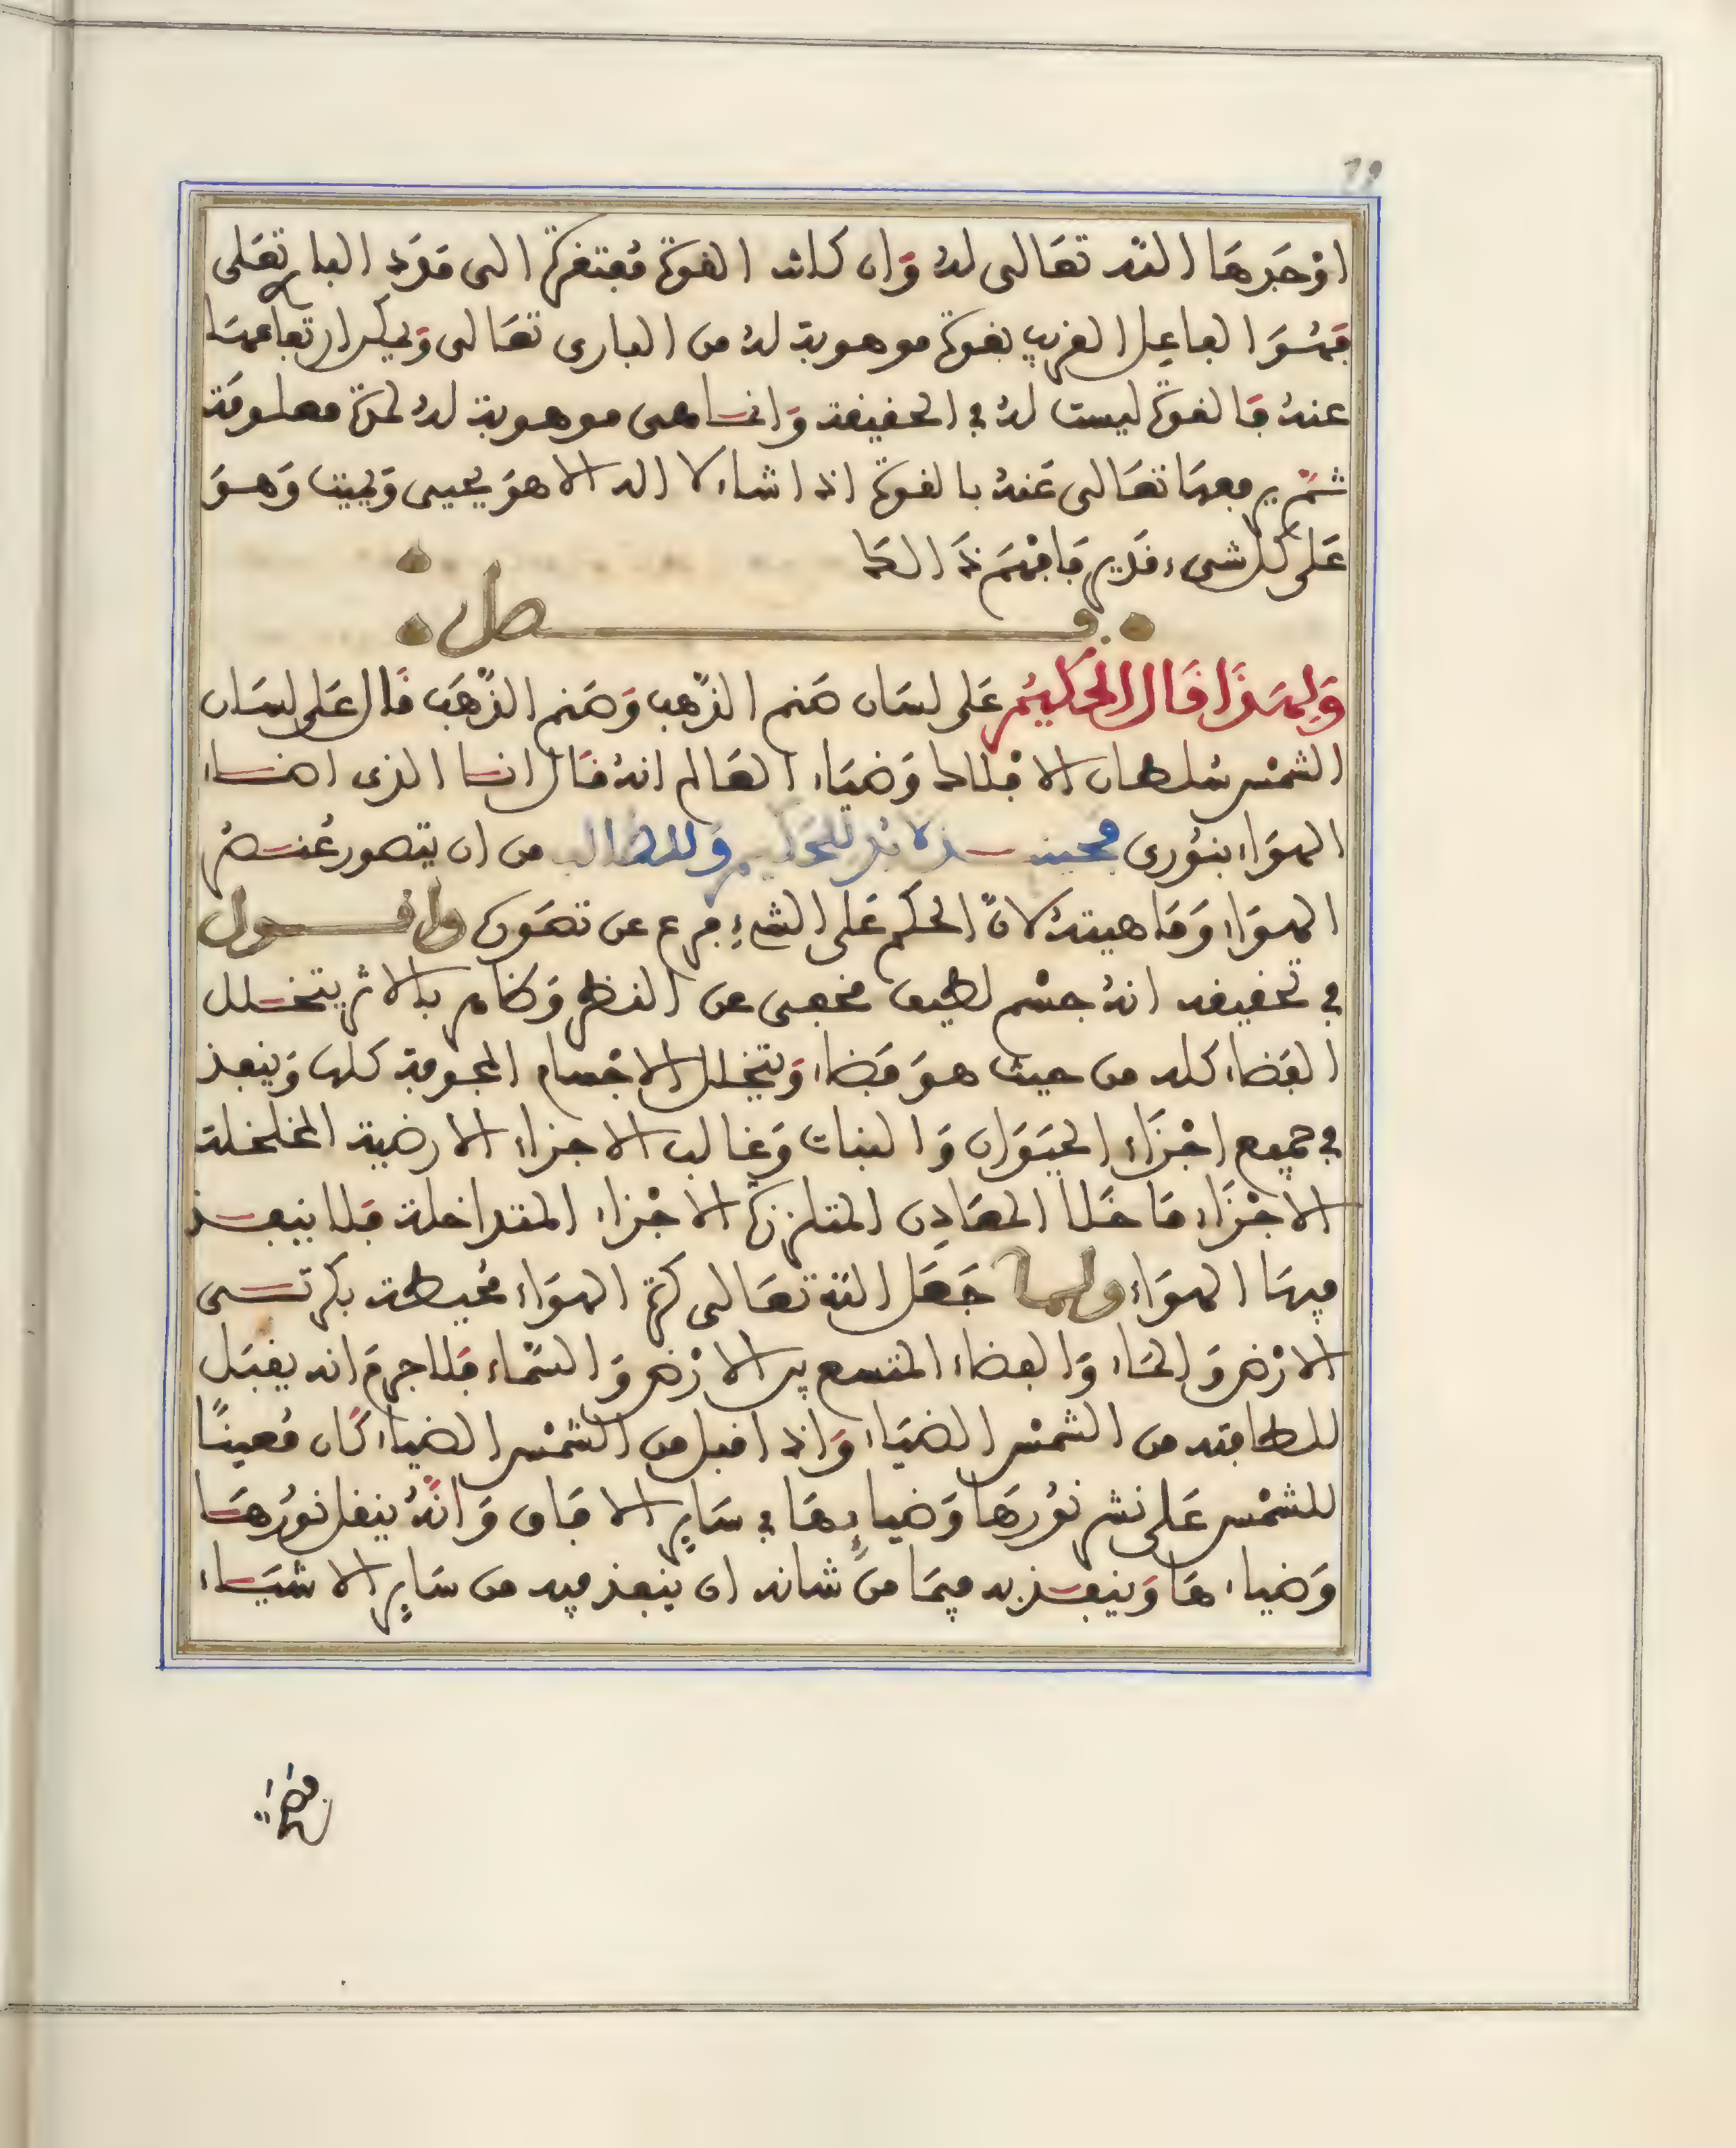 19
اوجدها الله تعالى له وان كانت القوة مفتقرة الى مدد البار تعلى
فهو الفاعل القريب بقوة موهوبة له من البارى تعالى ويمكن ارتفاعها
عنه فالقوة ليست له في الحقيقة وانما هى موهوبة له لمدة معلومة
ثم يرفعها تعالى عنه بالقوة اذا شاء لا اله الا هو يحيى ويميت وهو
على كل شىء قدير فافهم ذلك
فصل
ولهذا قال الحكيم على لسان صنم الذهب وصنم الذهب قال على لسان
الشمس سلطان الافلاك وضياء العالم انه قال انا الذى اضاء
الهواء بنورى فحينئذ لا بد للحكيم وللطالب من ان يتصور عنصر
الهواء وماهيته لان الحكم على الشىء فرع عن تصوره واقول
في تحقيقه انه جسم لطيف مخفى عن النظر وظاهر بالاثر يتخلل
الفضاء كله من حيث هو فضاء ويتخلل الاجسام المجوفة كلها وينفذ
في جميع اجزاء الحيوان والنبات وغالب الاجزاء الارضية المخلخلة
الاجزاء ما خلا المعادن المتلززة الاجزاء المتداخلة فلا ينفذ
فيها الهواء ولما جعل الله تعالى كرة الهواء محيطة بكرتى
الارض والماء والفضاء المتسع بين الارض والسماء فلا جرم انه يقبل
للطافته من الشمس الضياء واذا قبل من الشمس الضياء كان معينا
للشمس على نشر نورها وضيائها في سائر الافاق وانه ينقل نورها
وضياءها وينفذ به فيما من شانه ان ينفذ فيه من سائر الاشياء